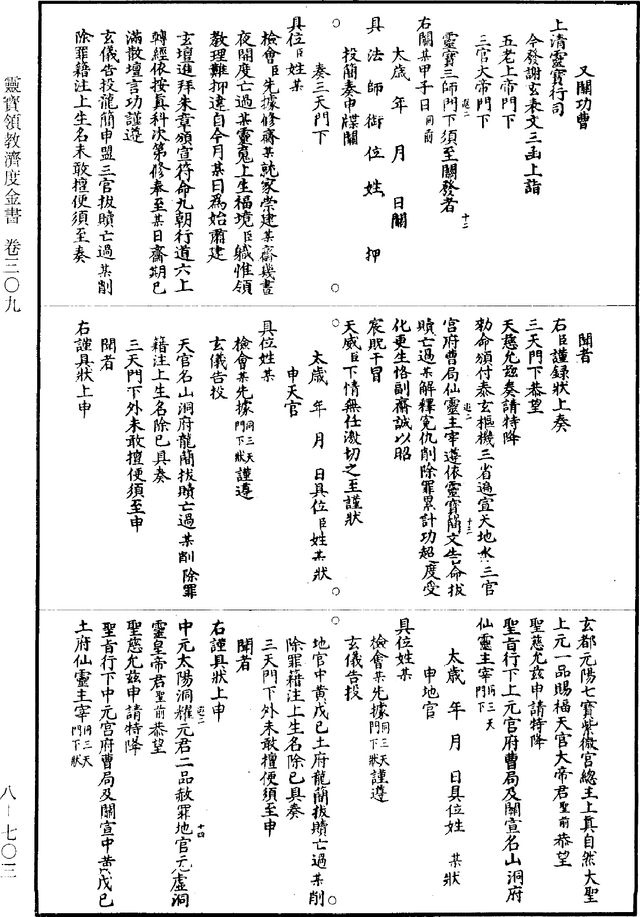 靈寶領教濟度金書 卷三〇九
八－七〇三
又關功曹
上清靈寶行司
今發謝玄表文三函上詣
五老上帝門下
三官大帝門下
靈寶三師門下須至關發者
右關某甲子日同前
太歲 年 月 日關
具 法 師 銜 位 姓 押
投簡奏申牒關
奏三天門下
具位臣姓某
檢會臣先據修齋某就家崇建某齋幾晝
夜開度亡過某靈魂上生福境臣職惟領
教理難抑違自今月某日為始肅建
玄壇進拜朱章頒宣符命九朝行道六上
轉經依按真科次第修奉至某日齋期已
滿散壇言功謹遵
玄儀告投龍簡申盟三官拔贖亡過某削
除罪籍注上生名未敢擅便須至奏
聞者
右臣謹錄狀上奏
三天門下恭望
天慈允茲奏請特降
勑命頒付泰玄樞機三省遍宣天地水三官
宮府曹局仙靈主宰遵依靈寶簡文告命拔
贖亡過某解釋冤仇削除罪累計功超度受
化更生恪副齋誠以昭
宸貺干冒
天威臣下情無任激切之至謹狀
太歲 年 月 日具位臣姓某狀
申天官
具位姓某
檢會某先據同三天門下狀謹遵
玄儀告投
天官名山洞府龍簡拔贖亡過某削除罪
籍注上生名除已具奏
三天門下外未敢擅便須至申
聞者
右謹具狀上申
玄都元陽七寶紫微宮總主上真自然大聖
上元一品賜福天官大帝君聖前恭望
聖慈允茲申請特降
聖旨行下上元宮府曹局及關宣名山洞府
仙靈主宰同三天門下
太歲 年 月 日具位姓 某狀
申地官
具位姓某
檢會某先據同三天門下狀謹遵
玄儀告投
地官中黃戊己土府龍簡拔贖亡過某削
除罪籍注上生名除已具奏
三天門下外未敢擅便須至申
聞者
右謹具狀上申
中元太陽洞耀元君二品赦罪地官元虛洞
靈皇帝君聖前恭望
聖慈允茲申請特降
聖旨行下中元宮府曹局及關宣中黃戊己
土府仙靈主宰同三天門下狀